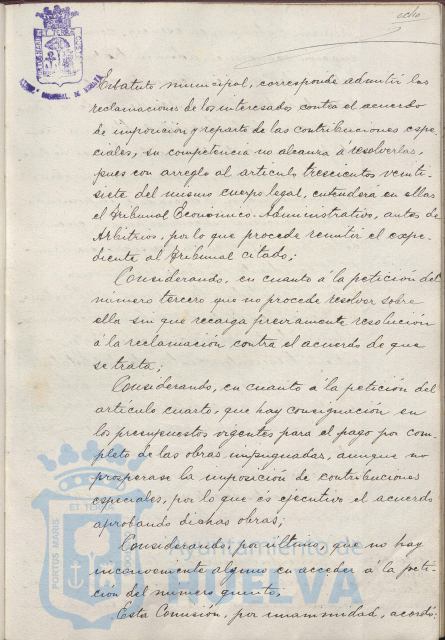 ocho
Estatuto municipal, corresponde admitir las
reclamaciones de los interesados contra el acuerdo
de imposición y reparto de las contribuciones espe-
ciales, su competencia no alcanza á resolverlas,
pues con arreglo al artículo trescientos veinti-
siete del mismo cuerpo legal, entenderá en ellas
el Tribunal Económico-Administrativo, antes de
Arbitrios, por lo que procede remitir el expe-
diente al Tribunal citado,;
Considerando, en cuanto á la petición del
número tercero que no procede resolver sobre
ella sin que recaiga previamente resolución
á la reclamación contra el acuerdo de que
se trata;
Considerando, en cuanto á la petición del
artículo cuarto, que hay consignación en
los presupuestos vigentes para el pago por com-
pleto de las obras impugnadas, aunque no
prosperase la imposición de contribuciones
especiales, por lo que és ejecutivo el acuerdo
aprobando dichas obras;
Considerando, por último, que no hay
inconveniente alguno en acceder á la peti-
ción del número quinto,
Esta Comisión, por unanimidad, acordó:
PORTUS MARIS ET TERRÆ
Ayuntamiento de
HUELVA